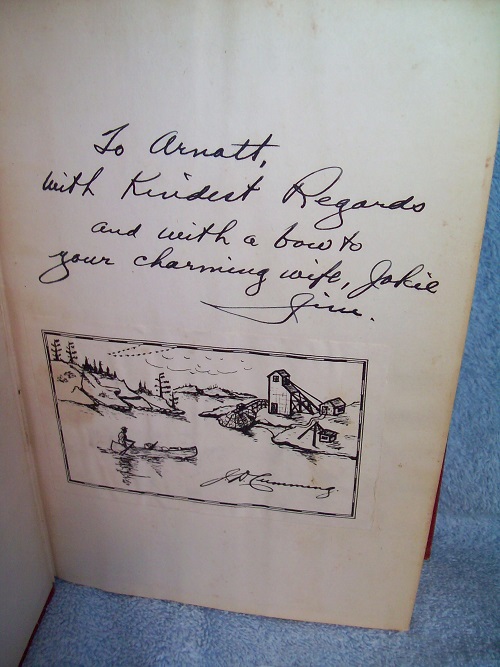 To Arnatt,
with Kindest Regards
and with a bow to
your charming wife, Jokie
Jim.
J D Cumming.